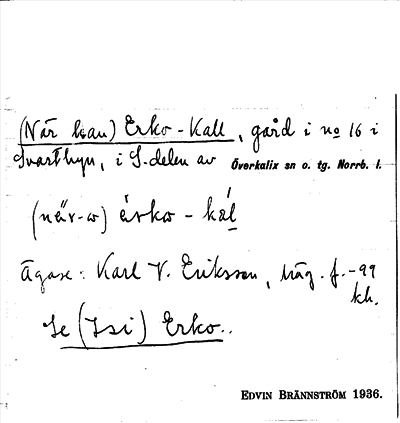 (När han) Erko-Kall, gård i no 16 i
Svartbyn, i S. delen av Överkalix sn o. tg. Norrb. l.
(nä́r-ɷ) érkɷ - kál
Ägare: Karl V. Eriksson, f. -99
kh.
Se (Isi) Erko..
EDVIN BRÄNNSTRÖM 1936.